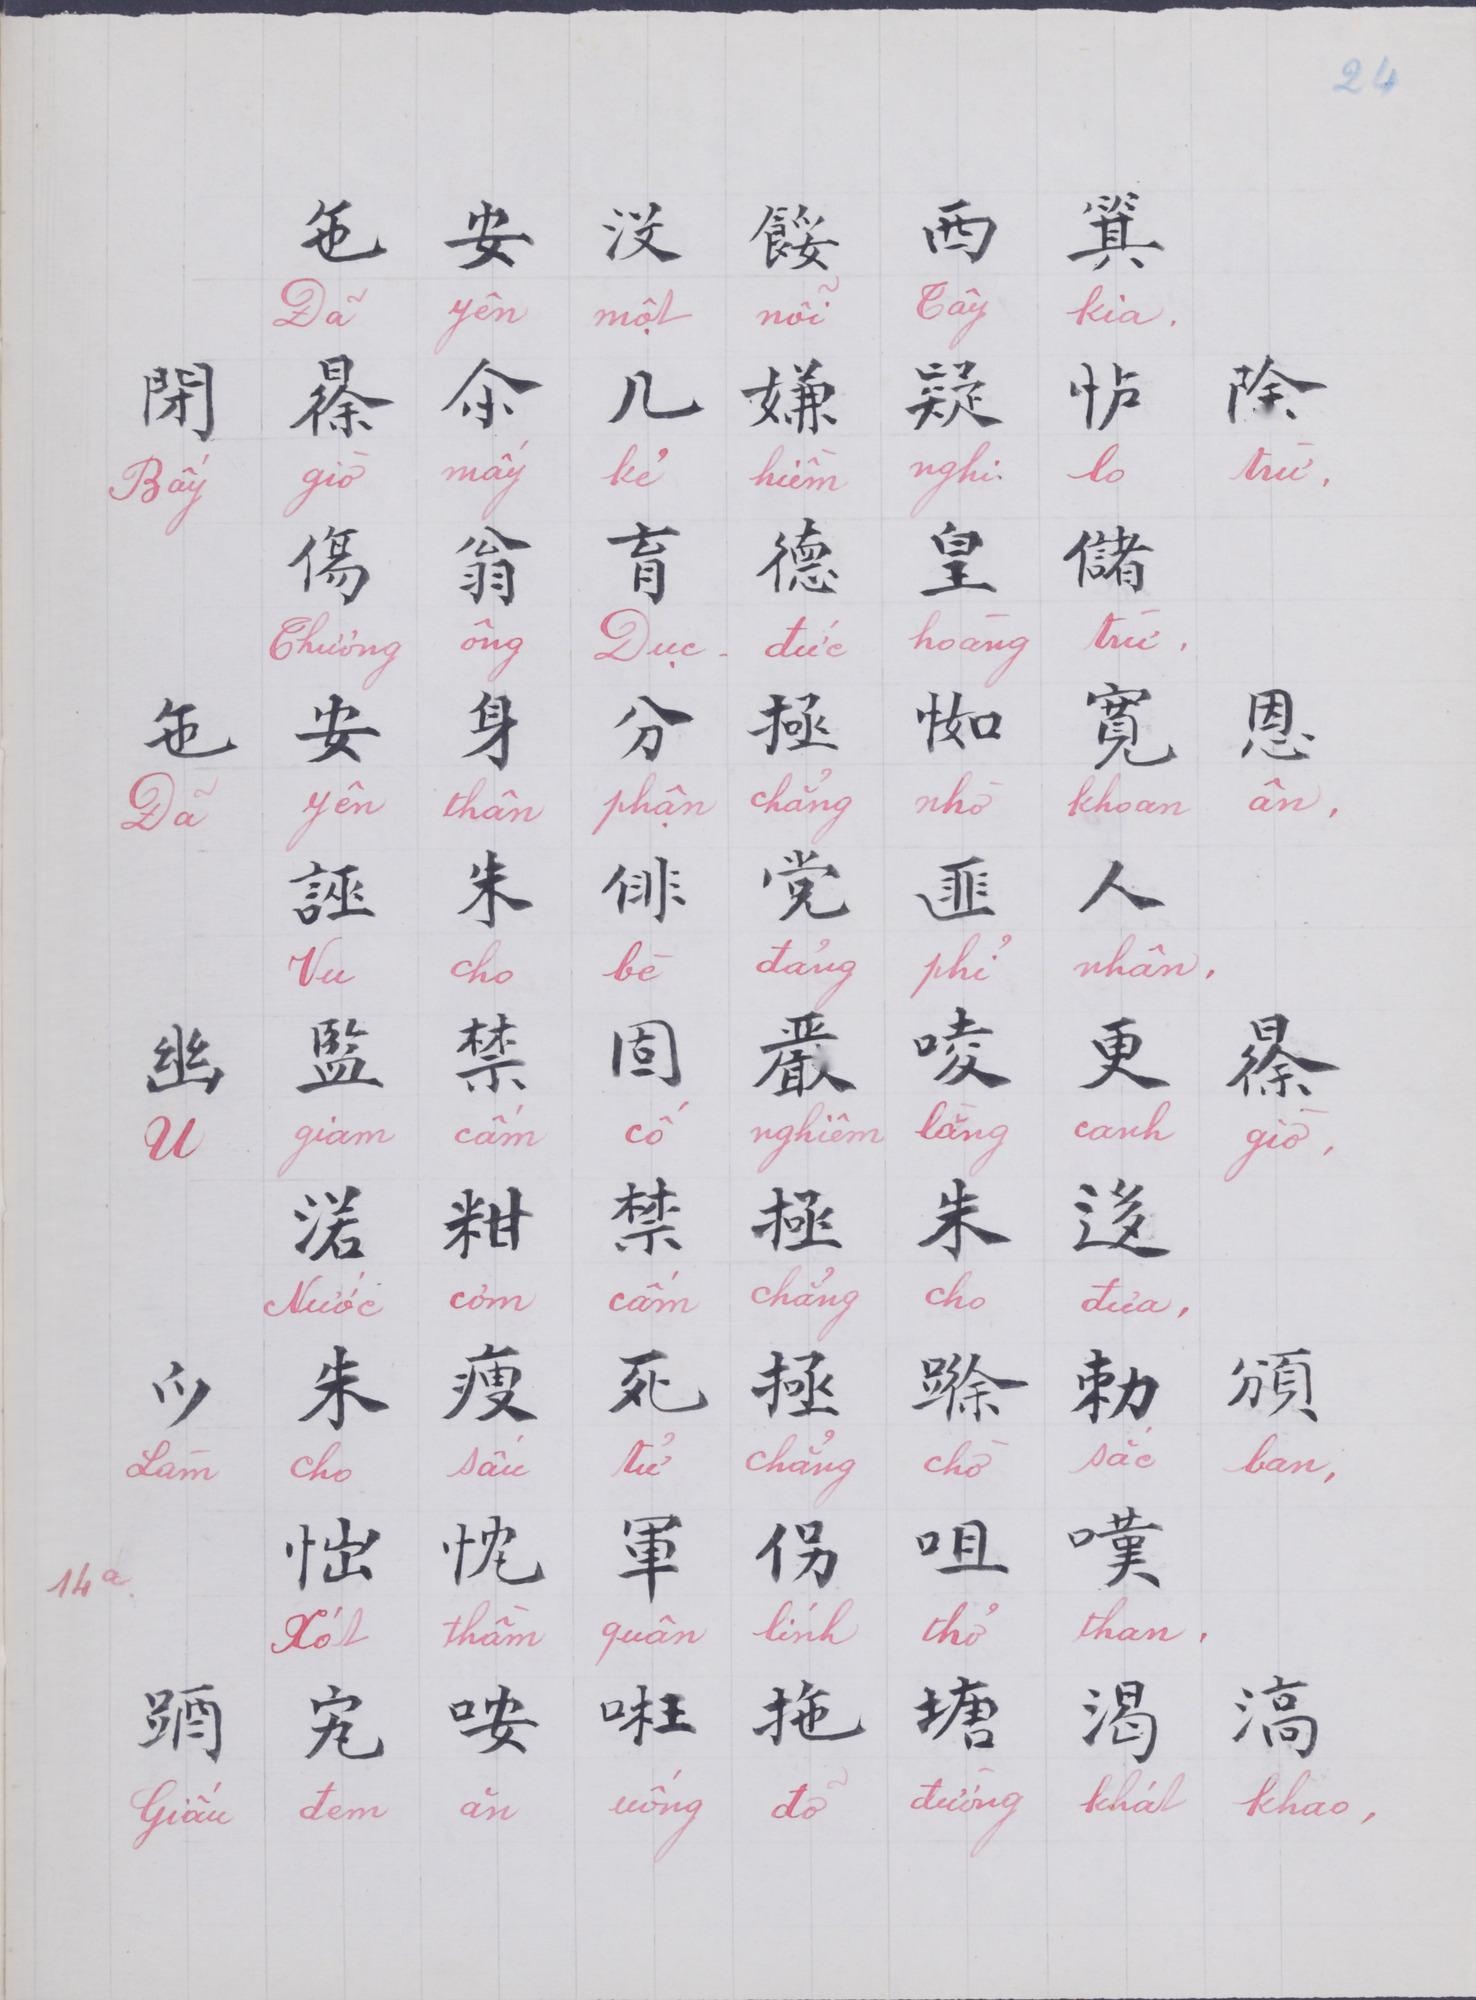 24
𠃅安沒餒西箕
Đã yên một nỗi Tây kia.
閉𣇞𠇍几嫌疑怗除
Bấy giờ mấy kẻ hiềm nghi lo trừ,
傷翁育德皇儲
Thương ông Dục-đức hoàng trừ,
𠃅安身分拯㤇寬恩
Đã yên thân phận chẳng nhờ khoan ân,
誣朱俳党匪人
Vu cho bè đảng phỉ nhân,
幽監禁固嚴唛更𣇞
U giam cấm cố nghiêm lằng canh giờ,
渃粓禁拯朱迻
Nước cơm cấm chẳng cho đưa,
𫜵朱瘦死拯蹨勅頒
Làm cho sấu tử chẳng chờ sắc ban,
㤕忱軍侽咀嘆
14a.
Xót thầm quân lính thở than,
𨠣宄咹㕵拖塘渴滈
Giấu đem ăn uống đỡ đường khát khao,